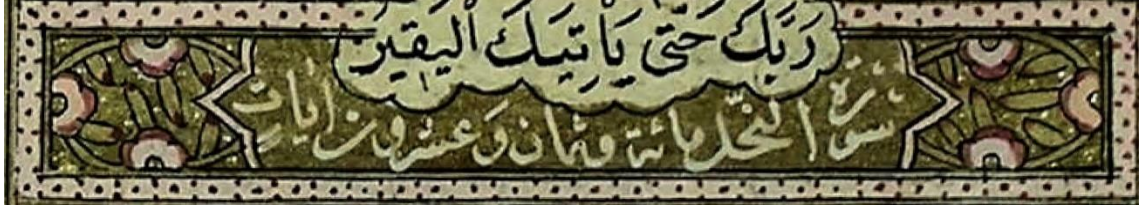 رَبَّكَ حَتّٰى يَأْتِيَكَ الْيَقِينُ
سورة النحل مائة وثمان وعشرون ايات